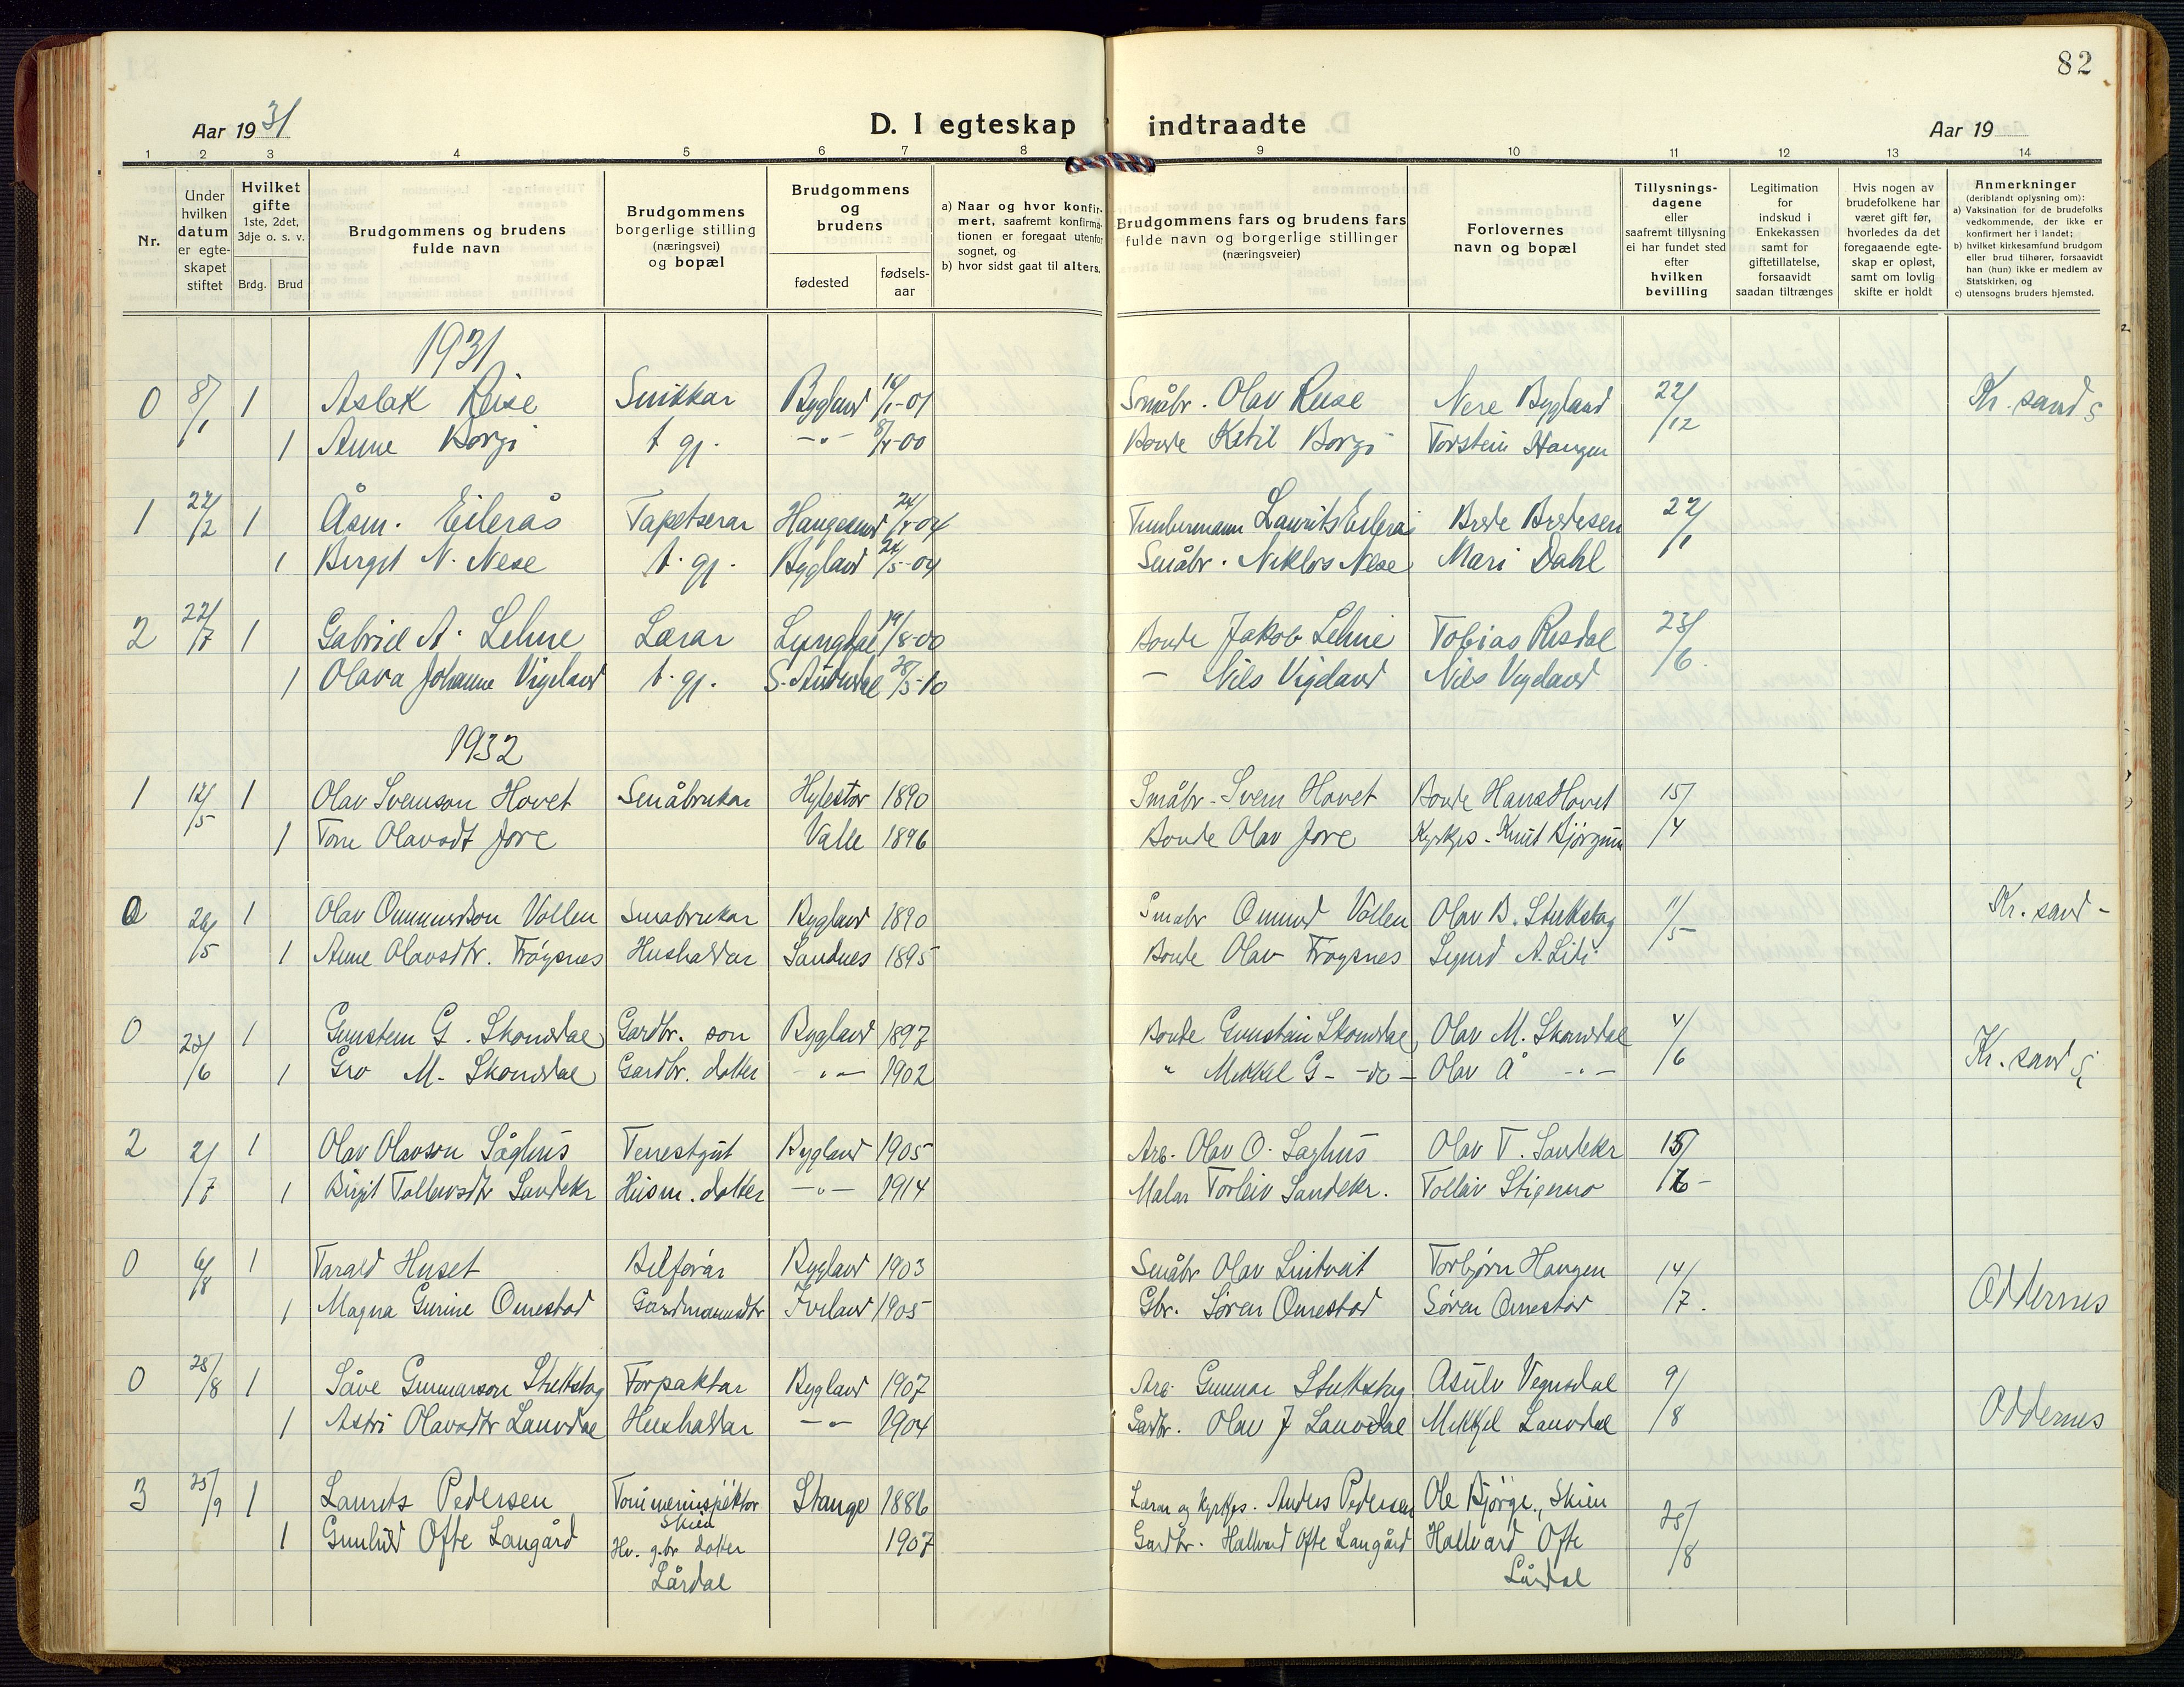 82
Aar 1931
D. I egteskap indtraadte
Aar 19
1 2 3 4 5 6 7 8 9 10 11 12 13 14
Nr.
Under hvilken datum er egteskapet stiftet
Hvilket gifte
1ste, 2det, 3dje o. s. v.
Brdg. Brud
Brudgommens og brudens fulde navn
Brudgommens borgerlige stilling (næringsvei) og bopæl
Brudgommens og brudens
fødested
fødsels-aar
a) Naar og hvor konfirmert, saafremt konfirmationen er foregaat utenfor sognet, og
b) hvor sidst gaat til alters.
Brudgommens fars og brudens fars fulde navn og borgerlige stillinger (næringsveier)
Forlovernes navn og bopæl
Tillysnings-dagene eller saafremt tillysning ei har fundet sted efter hvilken bevilling
Legitimation for indskud i Enkekassen samt for giftetillatelse, forsaavidt saadan tiltrænges
Hvis nogen av brudefolkene har været gift før, hvorledes da det foregaaende egteskap er opløst, samt om lovlig skifte er holdt
Anmerkninger (deriblandt oplysning om):
a) Vaksination for de brudefolks vedkommende, der ikke er konfirmert her i landet;
b) hvilket kirkesamfund brudgom eller brud tilhører, forsaavidt han (hun) ikke er medlem av Statskirken, og
c) utensogns bruders hjemsted.
1931
0 8/1 1 Aslak Reise Snikkar Bygland 14/1-01 Småbr. Olav Reise Nere Bygland 22/12 Kr. sand S
1 Anne Borgi t. gj. -"- 8/4-00 Bonde Ketil Borgi Torstein Haugen
1 22/2 1 Åsm. Eilerås Tapetserar Haugesund 24/8-04 Tømbermann Laurits Eilerås Brede Bredesen 22/1
1 Birgit N. Nese t. gj. Bygland 24/5-04 Småbr. Niklos Nese Mari Dahl
2 22/7 1 Gabriel A. Lehne Lærar Lyngdal 19/8-00 Bonde Jakob Lehne Tobias Risdal 23/6
1 Olava Johanne Vigeland t. gj. S. Audnedal 28/5-10 - Nils Vigeland Nils Vigeland
1932
1 12/5 1 Olav Sveinson Hovet Småbrukar Hylestad 1890 Småbr. Svein Hovet Bonde Hans Hovet 15/4
1 Tone Olavsdt Jore Valle 1896 Bonde Olav Jore Kyrkjes. Knut Bjørgum
0 26/5 1 Olav Omundson Vollen Småbrukar Bygland 1890 Småbr Omund Vollen Olav B. Stukstog 11/5 Kr. sand -
1 Anne Olavsdtr. Frøysnes Hushaldar Sandnes 1895 Bonde Olav Frøysnes Sigurd A. Lidi
0 23/6 1 Gunstein G. Skomedal Gardbr. son Bygland 1897 Bonde Gunstein Skomedal Olav M. Skomedal 4/6 Kr. sand S
1 Gro M. Skomedal Gardbr. dotter -"- 1902 " Mikkel G - -do- Olav Å -"-
2 2/7 1 Olav Olavson Såghus Tenestgut Bygland 1905 Arb. Olav O. Saghus Olav T. Sandekr 15/6-
1 Birgit Tolleivsdtr Sandekr Husm. dotter -"- 1914 Malar Torleiv Sandekr. Tolleiv Stigemo
0 6/8 1 Tarald Huset Bilførar Bygland 1903 Småbr Olav Lintveit Torbjørn Haugen 14/7. Oddernes
1 Magna Gurine Omestad Gardmannsdtr Iveland 1905 Gbr. Søren Omestad Søren Omestad
0 28/8 1 Såve Gunnarson Stukstog Forpaktar Bygland 1907 Arb. Gunnar Stukstog Asulv Vegusdal 9/8 Oddernes
1 Astri Olavsdtr Lauvdal Hushaldar -"- 1904 Gardbr. Olav J Lauvdal Mikkel Lauvdal
3 25/9 1 Laurits Pedersen Tømmerinspektør Skien Stange 1886 Lærar og kyrkjes. Anders Pedersen Ole Bjørge, Skien 28/8
1 Gunhild Ofte Langård Hv. g.br dotter Lårdal 1907 Gardbr. Hallvard Ofte Langård Hallvard Ofte Lårdal